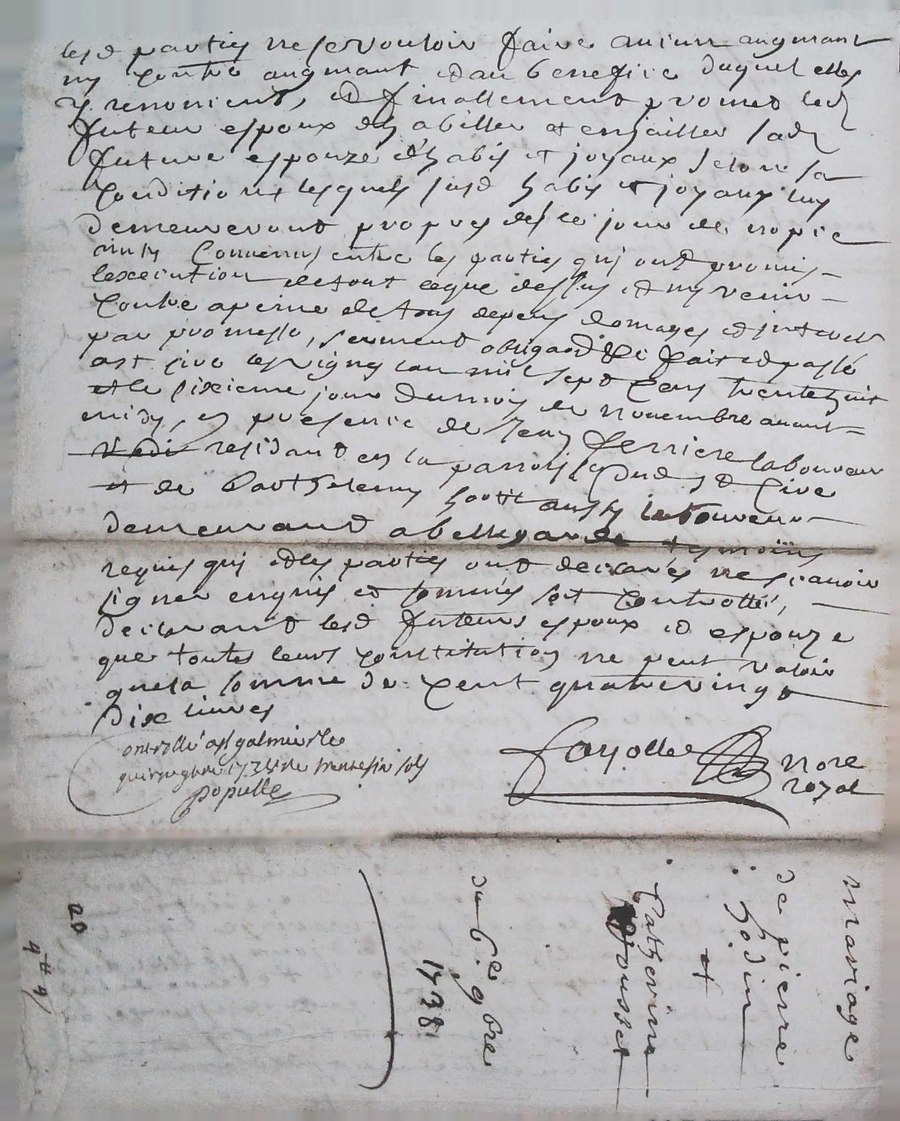 lesd parties ne se vouloir faire aucun augmant
ny contre augmant et au benefice duquel elles
y renoncent, et finallement promet led
futeur espoux d'habiller et enjailler lad
future espouze d'habis et joyaux selon sa
condition lesquels susd habis et joyaux luy
demeureront propres des le jour de nopce
ainsy convenus entre les parties quj ont promis
lexecution de tout ce que dessus et ny venir
contre a peine de tous depens domages et interets
par promesse, serment obligaon &c fait et passé
a st cire les vignes lan mil sept cens trente huit
et le sixieme jour du mois de novembre avant
midy, en presence de Jean ferriere laboureur
residant en la parroisse dud st Cire
et de Barthelemy aussy laboureur
demeurant a bellegarde tesmoins
requis quj et les parties ont declarés ne scavoir
signer enquis et sommés soit controllé,
declarant lesd futeurs espoux et espouze
que toutes leurs constitution ne peut valoir
que la somme de cent quatre vingt
dix livres
ontrollé a st galmier le
1738 trente six sols
populle
fayolle nore
royal
mariage
de pierre
hodin
et
Catherine
Jousset
du 6e 9bre
1738
20